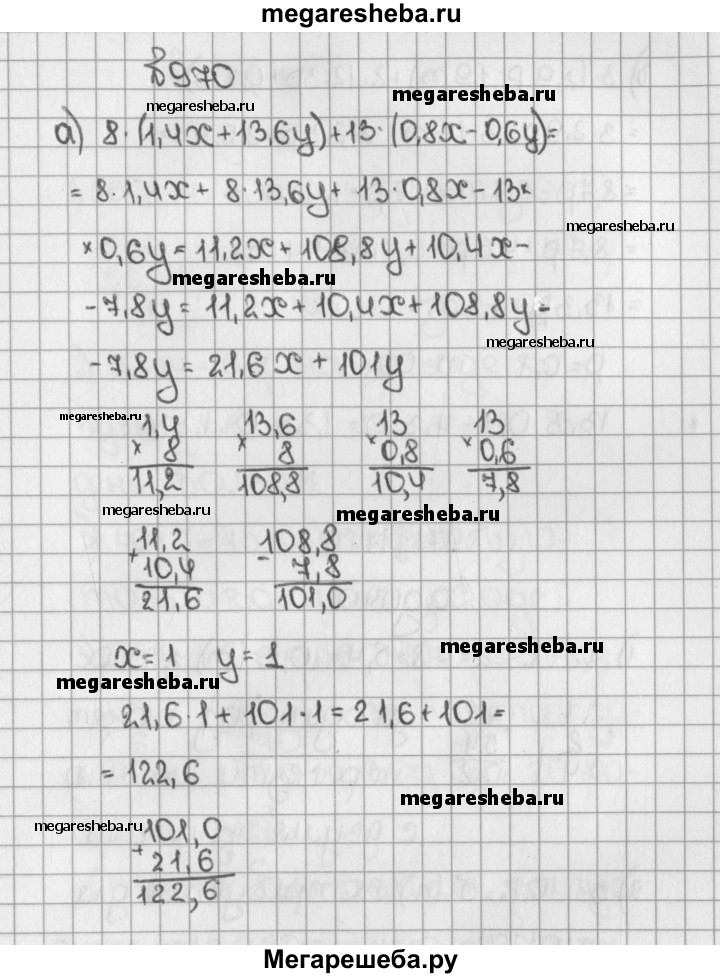 megaresheba.ru
№970
megaresheba.ru
megaresheba.ru
а) 8·(1,4x+13,6y)+13·(0,8x-0,6y)=
= 8·1,4x + 8·13,6y + 13·0,8x - 13×
megaresheba.ru
×0,6y = 11,2x + 108,8y + 10,4x -
megaresheba.ru
-7,8y = 11,2x + 10,4x + 108,8y -
megaresheba.ru
-7,8y = 21,6x + 101y
megaresheba.ru
1,4 13,6 13 13
× 8 × 8 × 0,8 × 0,6
11,2 108,8 10,4 7,8
megaresheba.ru
megaresheba.ru
11,2 108,8
+ 10,4 - 7,8
21,6 101,0
x=1 y=1
megaresheba.ru
megaresheba.ru
21,6·1 + 101·1 = 21,6+101=
= 122,6
megaresheba.ru
megaresheba.ru
101,0
+ 21,6
122,6
Мегарешеба.ру